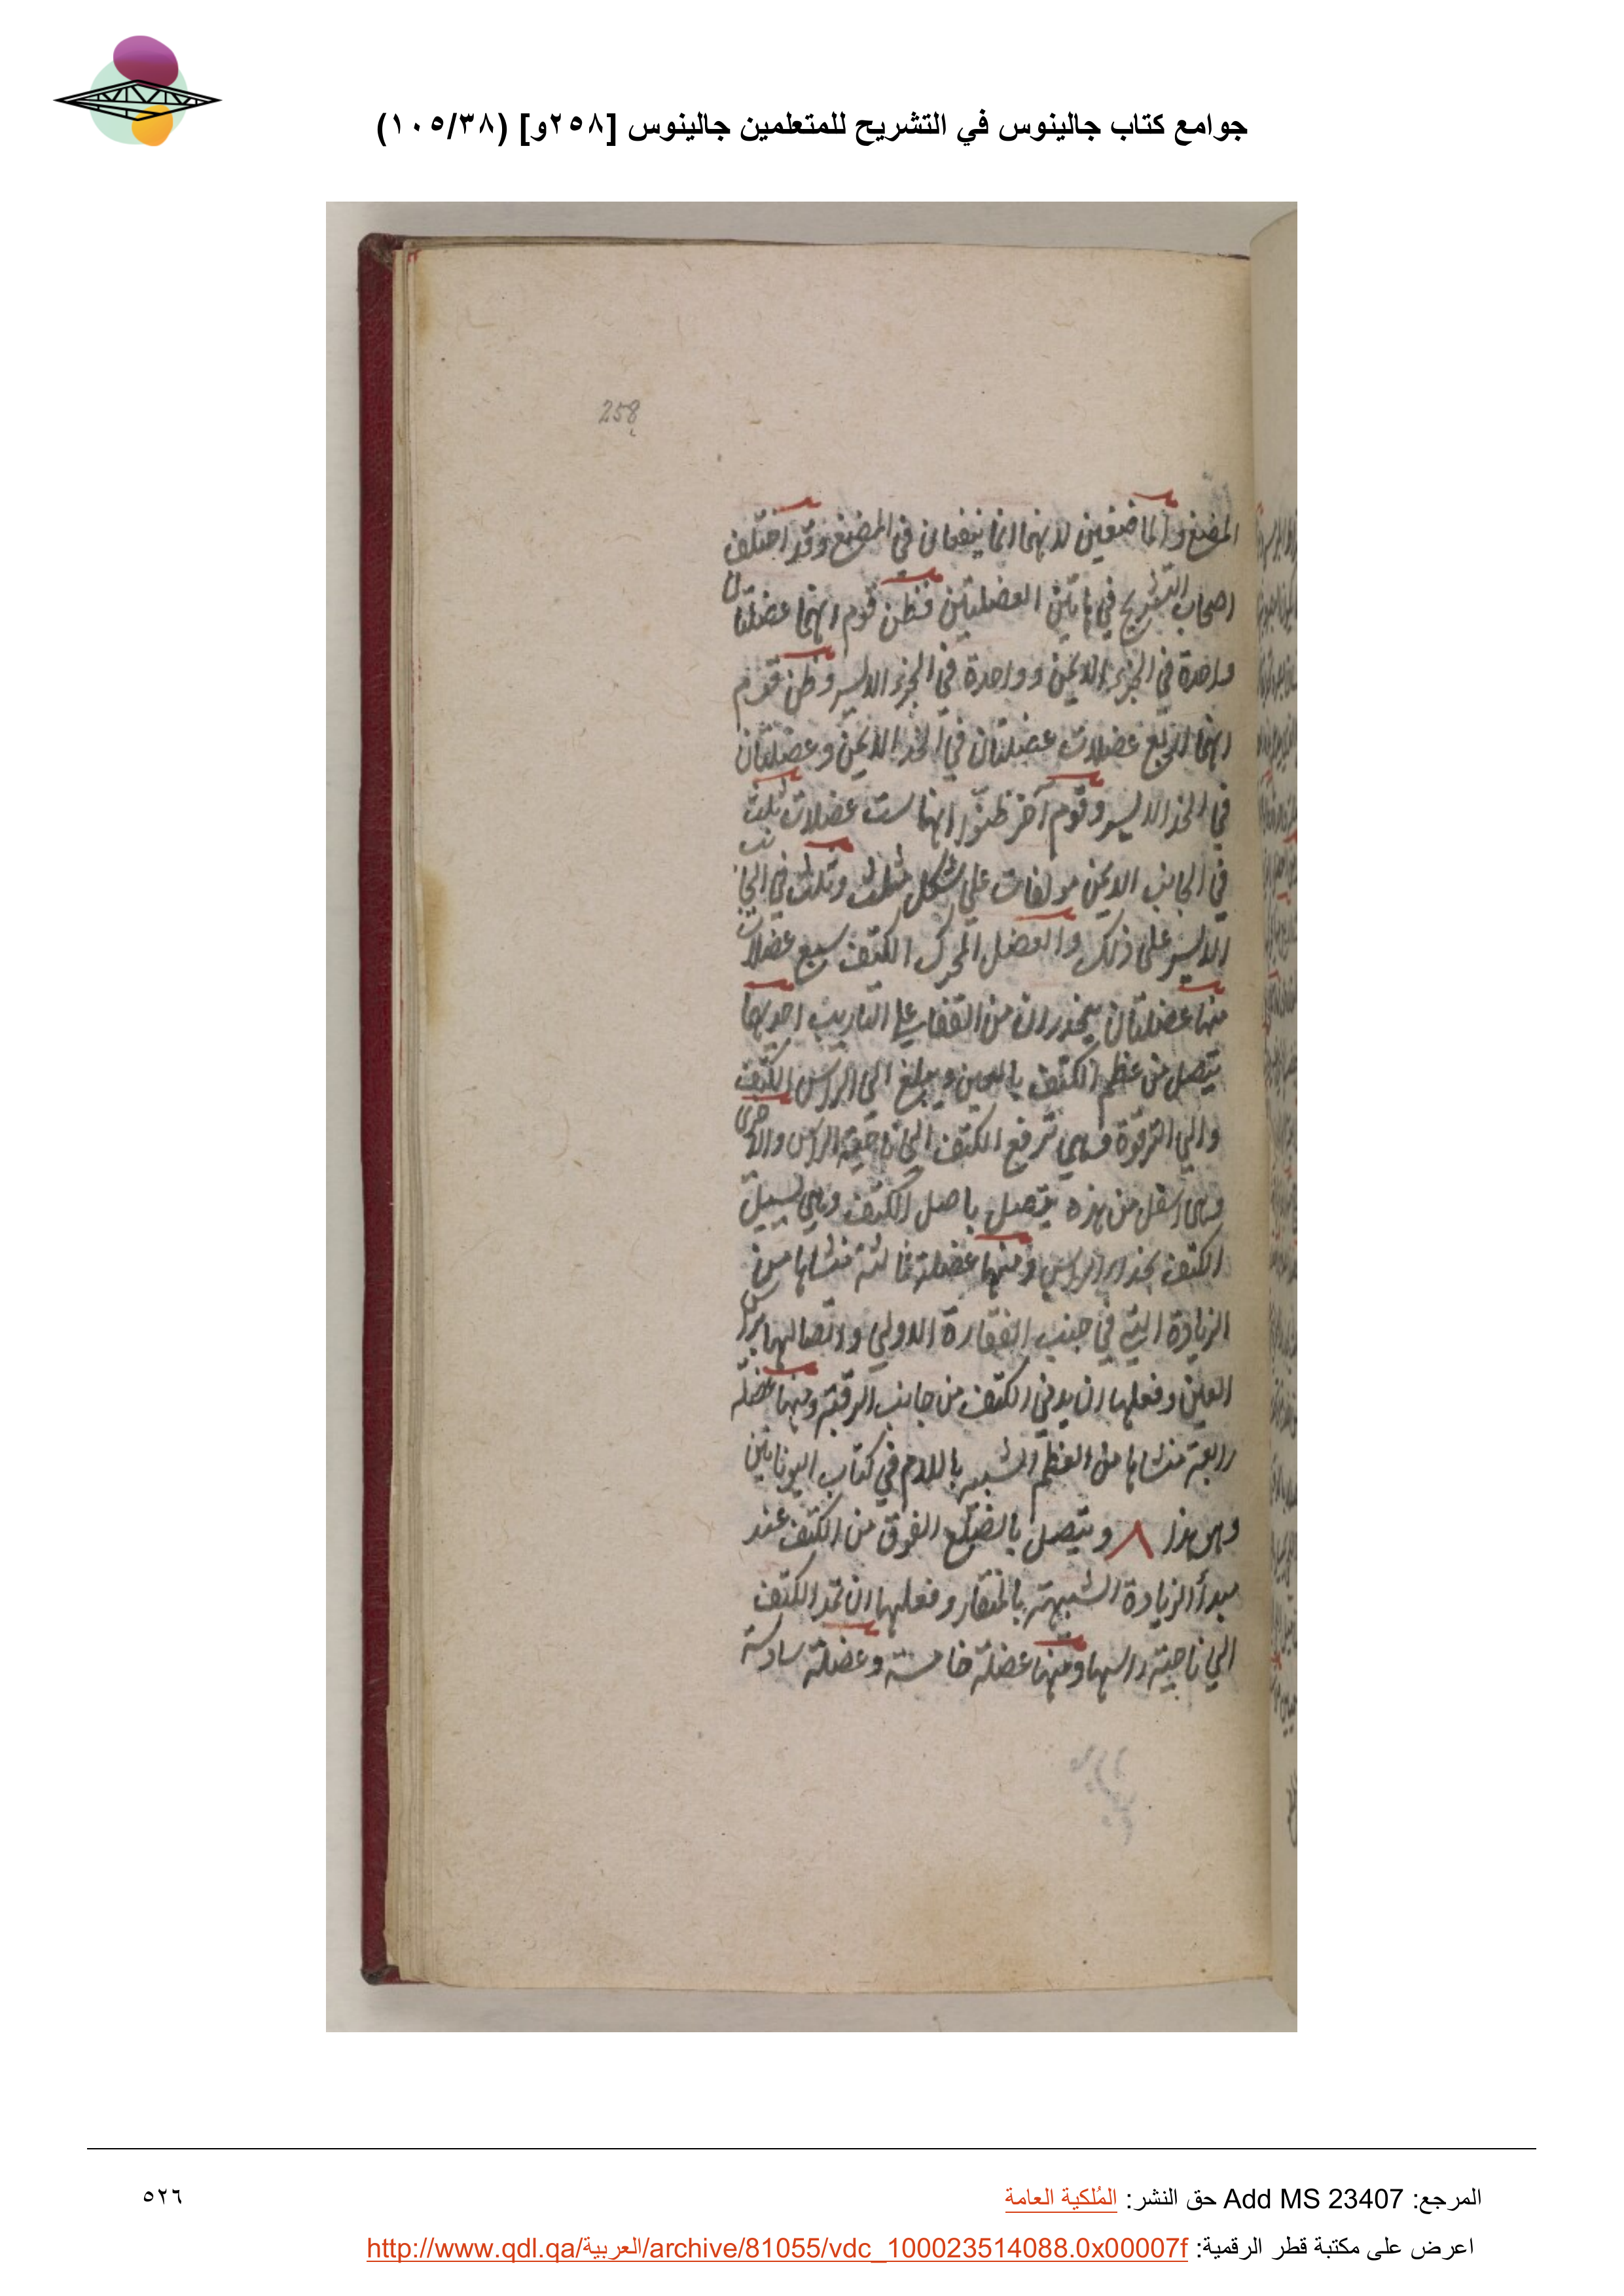 جوامع كتاب جالينوس في التشريح للمتعلمين جالينوس [٢٥٨و] (١٠٥/٣٨)
258
المضغ والماضغين لانهما انما ينفعان في المضغ وقد اختلف
اصحاب التشريح في هاتين العضلتين فظن قوم انهما عضلتان
واحدة في الجزء الايمن وواحدة في الجزء الايسر وظن قوم
انهما اربع عضلات عضلتان في الخد الايمن وعضلتان
في الخد الايسر وقوم آخر ظنوا انهما ست عضلات ثلث
في الجانب الايمن مولفات على شكل مثلث وثلث في الجانب
الايسر على ذلك والعضل المحرك الكتف سبع عضلات
منها عضلتان ينحدران من القفا على التاريب احديهما
يتصل من عظم الكتف بالعين ويبلغ الى الراس الكتف
والي الترقوة وهي ترفع الكتف الى ناحية الراس والاخرى
وهى اسفل من هذه يتصل باصل الكتف وهي تسبيل
الكتف بحذاء الراس ومنها عضلة ثالثة منشاها من
الزيادة التي في جنب الفقارة الاولي واتصالها براس
العين وفعلها ان يدني الكتف من جانب الرقبة ومنها عضلة
رابعة منشاها من العظم الشبيه باللام في كتاب اليونانين
وهو هذا ٨ ويتصل بالضلع الفوق من الكتف عند
مبدأ الزيادة الشبيهة بالمنقار وفعلها ان تمد الكتف
الي ناحية راسها ومنها عضلة خامسة وعضلة سادسة
المرجع: Add MS 23407 حق النشر: المُلكية العامة
٥٢٦
اعرض على مكتبة قطر الرقمية: http://www.qdl.qa/العربية/archive/81055/vdc_100023514088.0x00007f